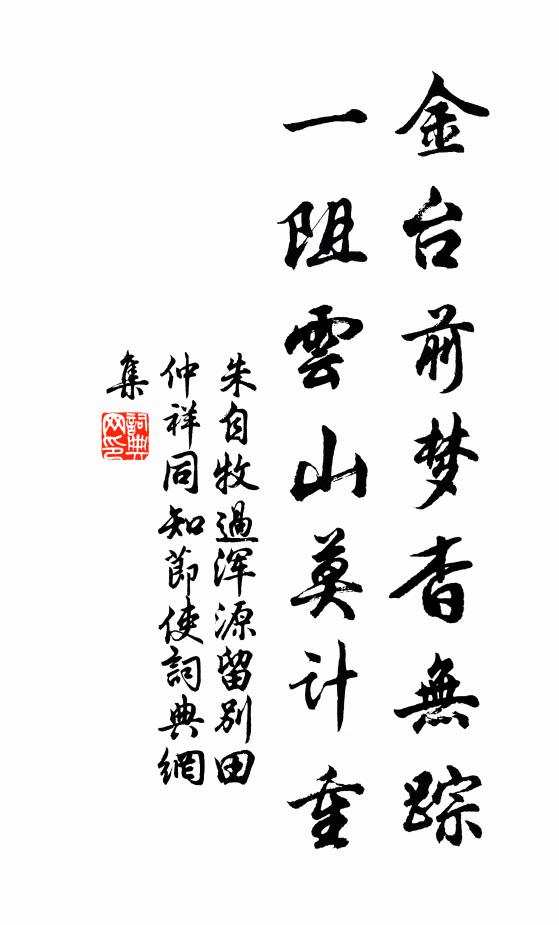 金台前梦杳無踪
一阻雲山莫计重
朱自牧過浑源留别田
仲祥同知節使詞典網
集
詞典网印